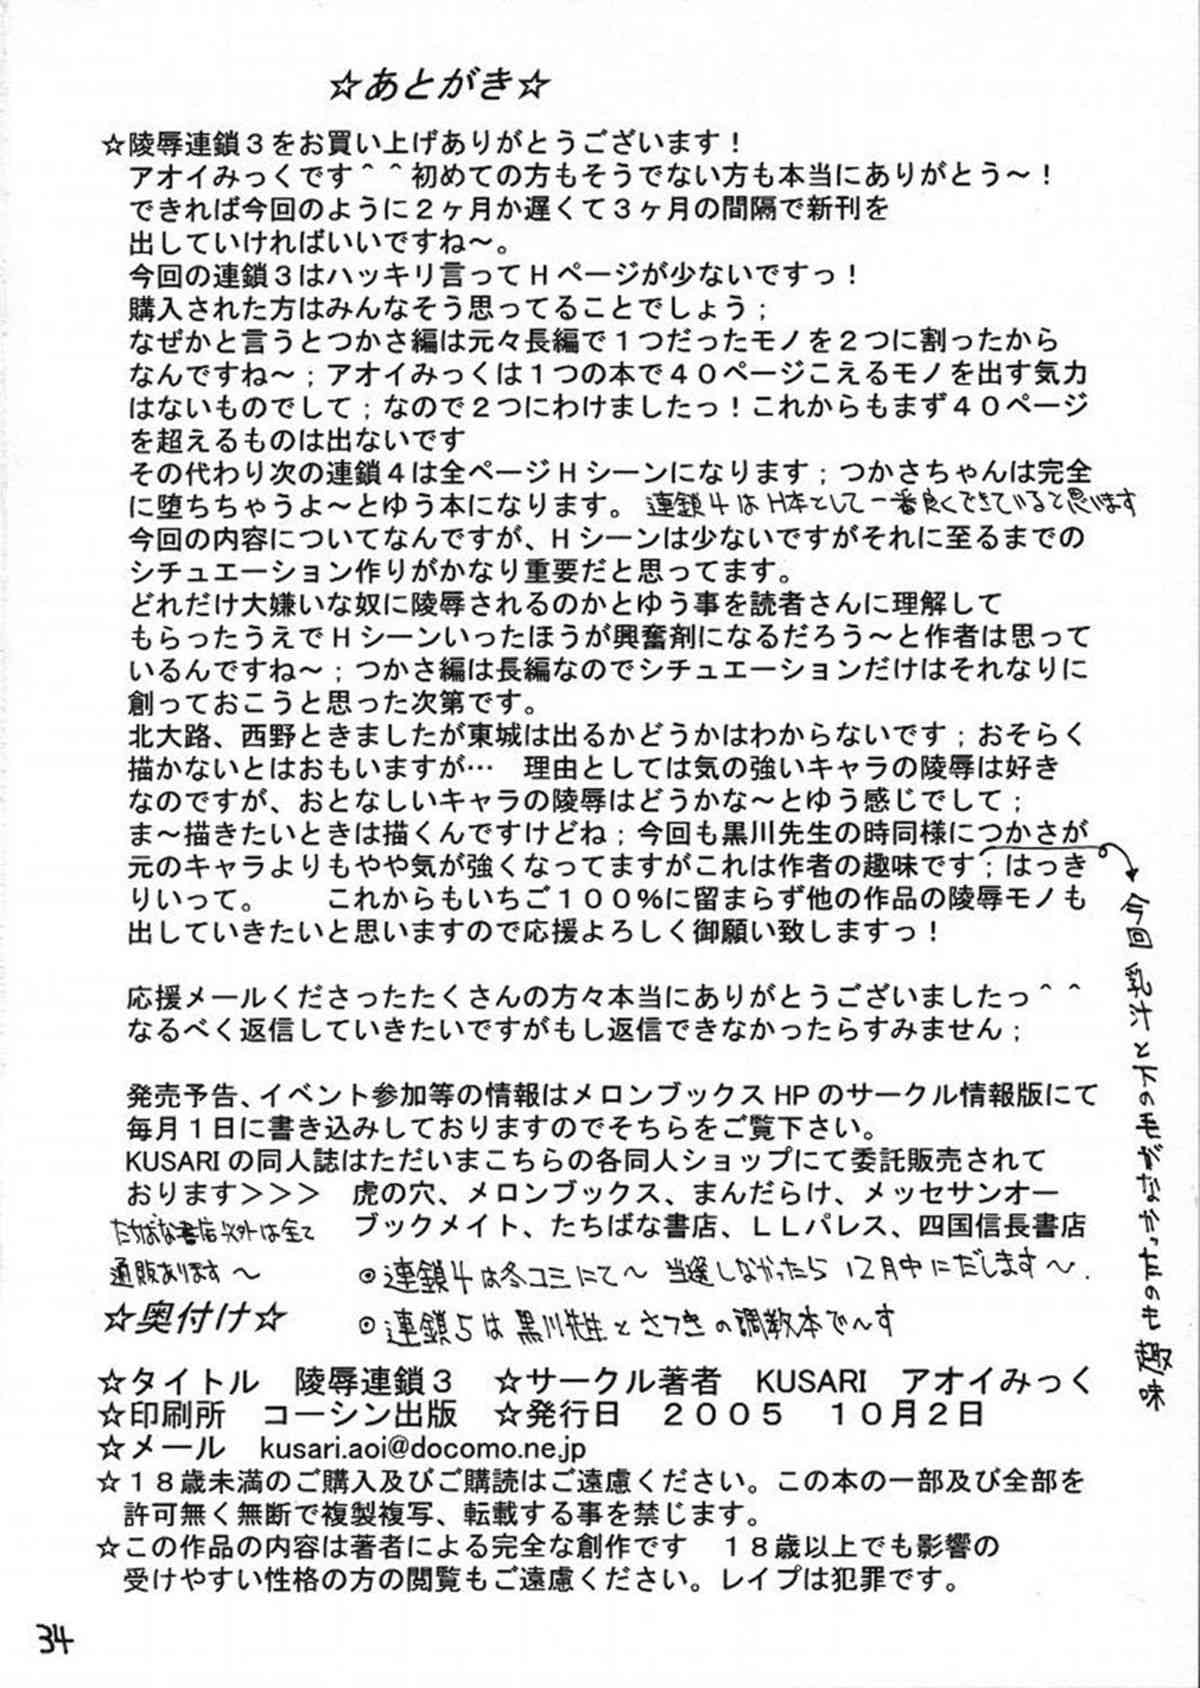 ☆あとがき☆
☆陵辱連鎖３をお買い上げありがとうございます！
アオイみっくです＾＾初めての方もそうでない方も本当にありがとう～！
できれば今回のように２ヶ月か遅くて３ヶ月の間隔で新刊を
出していければいいですね～。
今回の連鎖３はハッキリ言ってＨページが少ないですっ！
購入された方はみんなそう思ってることでしょう；
なぜかと言うとつかさ編は元々長編で１つだったモノを２つに割ったから
なんですね～；アオイみっくは１つの本で４０ページこえるモノを出す気力
はないものでして；なので２つにわけましたっ！これからもまず４０ページ
を超えるものは出ないです
その代わり次の連鎖４は全ページＨシーンになります；つかさちゃんは完全
に堕ちちゃうよ～とゆう本になります。 連鎖４はＨ本として一番良くできていると思います
今回の内容についてなんですが、Ｈシーンは少ないですがそれに至るまでの
シチュエーション作りがかなり重要だと思ってます。
どれだけ大嫌いな奴に陵辱されるのかとゆう事を読者さんに理解して
もらったうえでＨシーンいったほうが興奮剤になるだろう～と作者は思って
いるんですね～；つかさ編は長編なのでシチュエーションだけはそれなりに
創っておこうと思った次第です。
北大路、西野ときましたが東城は出るかどうかはわからないです；おそらく
描かないとはおもいますが… 理由としては気の強いキャラの陵辱は好き
なのですが、おとなしいキャラの陵辱はどうかな～とゆう感じでして；
ま～描きたいときは描くんですけどね；今回も黒川先生の時同様につかさが
元のキャラよりもやや気が強くなってますがこれは作者の趣味です；はっき
りいって。 これからもいちご１００％に留まらず他の作品の陵辱モノも
出していきたいと思いますので応援よろしく御願い致しますっ！
今回乳汁と下の毛がなかったのも趣味
応援メールくださったたくさんの方々本当にありがとうございましたっ＾＾
なるべく返信していきたいですがもし返信できなかったらすみません；
発売予告、イベント参加等の情報はメロンブックス HP のサークル情報版にて
毎月１日に書き込みしておりますのでそちらをご覧下さい。
KUSARI の同人誌はただいまこちらの各同人ショップにて委託販売されて
おります＞＞＞ 虎の穴、メロンブックス、まんだらけ、メッセサンオー
ブックメイト、たちばな書店、ＬＬパレス、四国信長書店
たちばな書店以外は全て
通販あります～
◎連鎖４は冬コミにて～ 当選しなかったら１２月中にだします～．
◎連鎖５は黒川先生とさつきの調教本で～す
☆奥付け☆
☆タイトル 陵辱連鎖３ ☆サークル著者 KUSARI アオイみっく
☆印刷所 コーシン出版 ☆発行日 ２００５ １０月２日
☆メール kusari.aoi@docomo.ne.jp
☆１８歳未満のご購入及びご購読はご遠慮ください。この本の一部及び全部を
許可無く無断で複製複写、転載する事を禁じます。
☆この作品の内容は著者による完全な創作です １８歳以上でも影響の
受けやすい性格の方の閲覧もご遠慮ください。レイプは犯罪です。
34